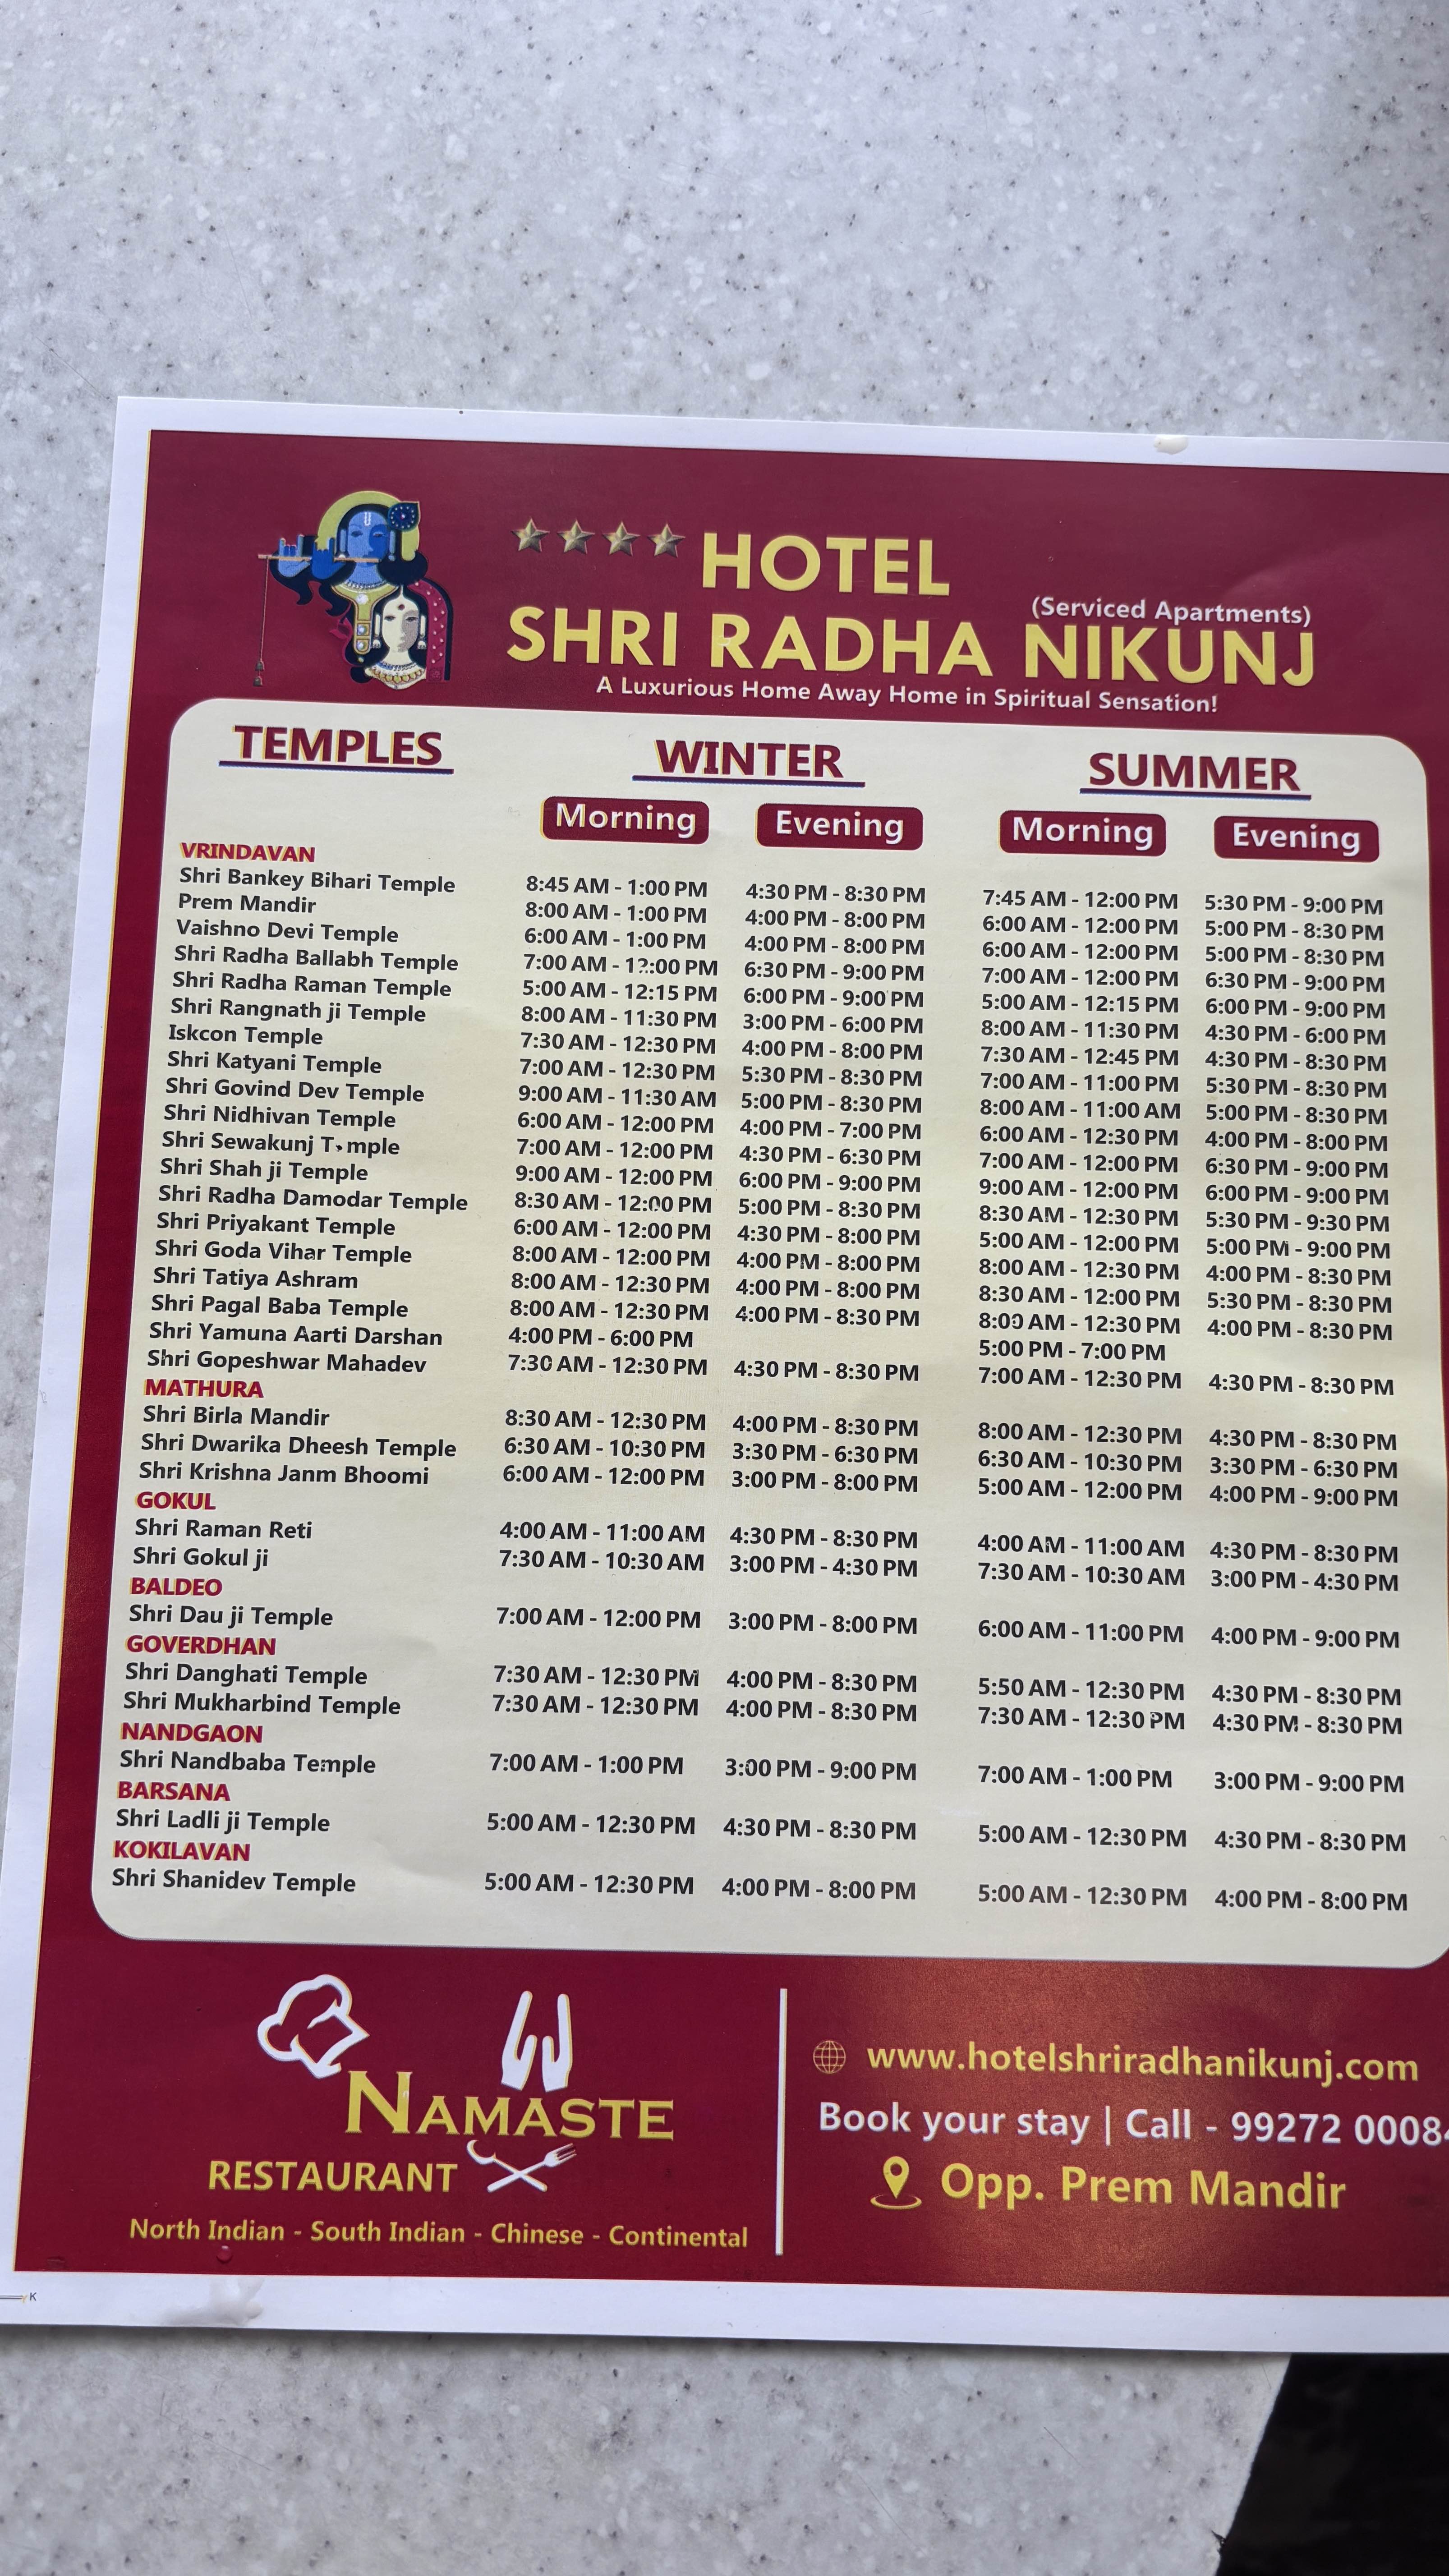 HOTEL
(Serviced Apartments)
SHRI RADHA NIKUNJ
A Luxurious Home Away Home in Spiritual Sensation!
TEMPLES WINTER SUMMER
Morning Evening Morning Evening
VRINDAVAN
Shri Bankey Bihari Temple 8:45 AM - 1:00 PM 4:30 PM - 8:30 PM 7:45 AM - 12:00 PM 5:30 PM - 9:00 PM
Prem Mandir 8:00 AM - 1:00 PM 4:00 PM - 8:00 PM 6:00 AM - 12:00 PM 5:00 PM - 8:30 PM
Vaishno Devi Temple 6:00 AM - 1:00 PM 4:00 PM - 8:00 PM 6:00 AM - 12:00 PM 5:00 PM - 8:30 PM
Shri Radha Ballabh Temple 7:00 AM - 12:00 PM 6:30 PM - 9:00 PM 7:00 AM - 12:00 PM 6:30 PM - 9:00 PM
Shri Radha Raman Temple 5:00 AM - 12:15 PM 6:00 PM - 9:00 PM 5:00 AM - 12:15 PM 6:00 PM - 9:00 PM
Shri Rangnath ji Temple 8:00 AM - 11:30 PM 3:00 PM - 6:00 PM 8:00 AM - 11:30 PM 4:30 PM - 6:00 PM
Iskcon Temple 7:30 AM - 12:30 PM 4:00 PM - 8:00 PM 7:30 AM - 12:45 PM 4:30 PM - 8:30 PM
Shri Katyani Temple 7:00 AM - 12:30 PM 5:30 PM - 8:30 PM 7:00 AM - 11:00 PM 5:30 PM - 8:30 PM
Shri Govind Dev Temple 9:00 AM - 11:30 AM 5:00 PM - 8:30 PM 8:00 AM - 11:00 AM 5:00 PM - 8:30 PM
Shri Nidhivan Temple 6:00 AM - 12:00 PM 4:00 PM - 7:00 PM 6:00 AM - 12:30 PM 4:00 PM - 8:00 PM
Shri Sewakunj Temple 7:00 AM - 12:00 PM 4:30 PM - 6:30 PM 7:00 AM - 12:00 PM 6:30 PM - 9:00 PM
Shri Shah ji Temple 9:00 AM - 12:00 PM 6:00 PM - 9:00 PM 9:00 AM - 12:00 PM 6:00 PM - 9:00 PM
Shri Radha Damodar Temple 8:30 AM - 12:00 PM 5:00 PM - 8:30 PM 8:30 AM - 12:30 PM 5:30 PM - 9:30 PM
Shri Priyakant Temple 6:00 AM - 12:00 PM 4:30 PM - 8:00 PM 5:00 AM - 12:00 PM 5:00 PM - 9:00 PM
Shri Goda Vihar Temple 8:00 AM - 12:00 PM 4:00 PM - 8:00 PM 8:00 AM - 12:30 PM 4:00 PM - 8:30 PM
Shri Tatiya Ashram 8:00 AM - 12:30 PM 4:00 PM - 8:00 PM 8:30 AM - 12:00 PM 5:30 PM - 8:30 PM
Shri Pagal Baba Temple 8:00 AM - 12:30 PM 4:00 PM - 8:30 PM 8:00 AM - 12:30 PM 4:00 PM - 8:30 PM
Shri Yamuna Aarti Darshan 4:00 PM - 6:00 PM 5:00 PM - 7:00 PM
Shri Gopeshwar Mahadev 7:30 AM - 12:30 PM 4:30 PM - 8:30 PM 7:00 AM - 12:30 PM 4:30 PM - 8:30 PM
MATHURA
Shri Birla Mandir 8:30 AM - 12:30 PM 4:00 PM - 8:30 PM 8:00 AM - 12:30 PM 4:30 PM - 8:30 PM
Shri Dwarika Dheesh Temple 6:30 AM - 10:30 PM 3:30 PM - 6:30 PM 6:30 AM - 10:30 PM 3:30 PM - 6:30 PM
Shri Krishna Janm Bhoomi 6:00 AM - 12:00 PM 3:00 PM - 8:00 PM 5:00 AM - 12:00 PM 4:00 PM - 9:00 PM
GOKUL
Shri Raman Reti 4:00 AM - 11:00 AM 4:30 PM - 8:30 PM 4:00 AM - 11:00 AM 4:30 PM - 8:30 PM
Shri Gokul ji 7:30 AM - 10:30 AM 3:00 PM - 4:30 PM 7:30 AM - 10:30 AM 3:00 PM - 4:30 PM
BALDEO
Shri Dau ji Temple 7:00 AM - 12:00 PM 3:00 PM - 8:00 PM 6:00 AM - 11:00 PM 4:00 PM - 9:00 PM
GOVERDHAN
Shri Danghati Temple 7:30 AM - 12:30 PM 4:00 PM - 8:30 PM 5:50 AM - 12:30 PM 4:30 PM - 8:30 PM
Shri Mukharbind Temple 7:30 AM - 12:30 PM 4:00 PM - 8:30 PM 7:30 AM - 12:30 PM 4:30 PM - 8:30 PM
NANDGAON
Shri Nandbaba Temple 7:00 AM - 1:00 PM 3:00 PM - 9:00 PM 7:00 AM - 1:00 PM 3:00 PM - 9:00 PM
BARSANA
Shri Ladli ji Temple 5:00 AM - 12:30 PM 4:30 PM - 8:30 PM 5:00 AM - 12:30 PM 4:30 PM - 8:30 PM
KOKILAVAN
Shri Shanidev Temple 5:00 AM - 12:30 PM 4:00 PM - 8:00 PM 5:00 AM - 12:30 PM 4:00 PM - 8:00 PM
NAMASTE
RESTAURANT
North Indian - South Indian - Chinese - Continental
www.hotelshriradhanikunj.com
Book your stay | Call - 99272 00084
Opp. Prem Mandir
K